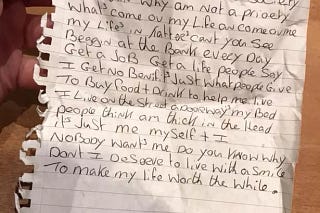 Why am not a prioety
What's come ov my Life ov come ov me
my Life's in Tatters cant you see
Beggin at the Bank every Day
Get a Job Get a life people Say
I Get No Benifits Just what people Give
To Buy Food + Drink to help me live
I Live on the Street a doorway's my Bed
people think am thick in the Head
It's Just me myself + I
NoBody Want's me Do you Know Why
Dont I Deserve to Live with a Smile
To make my life worth the while.